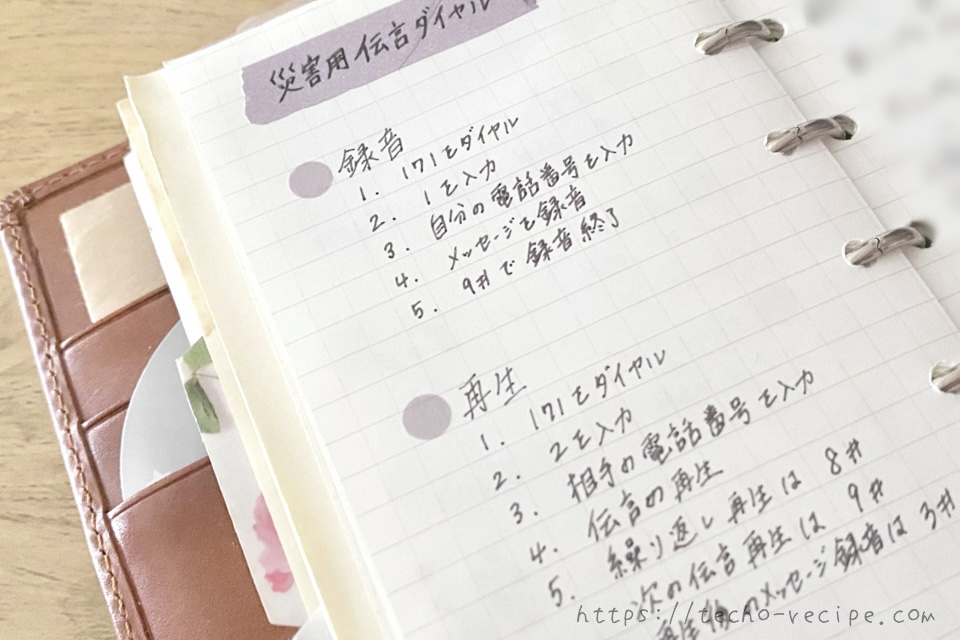 災害用伝言ダイヤル
録音
1. 171をダイヤル
2. 1を入力
3. 自分の電話番号を入力
4. メッセージを録音
5. 9#で録音終了
再生
1. 171をダイヤル
2. 2を入力
3. 相手の電話番号を入力
4. 伝言の再生
5. 繰り返し再生は 8#
次の伝言再生は 9#
再生後のメッセージ録音は 3#
https://techo-recipe.com